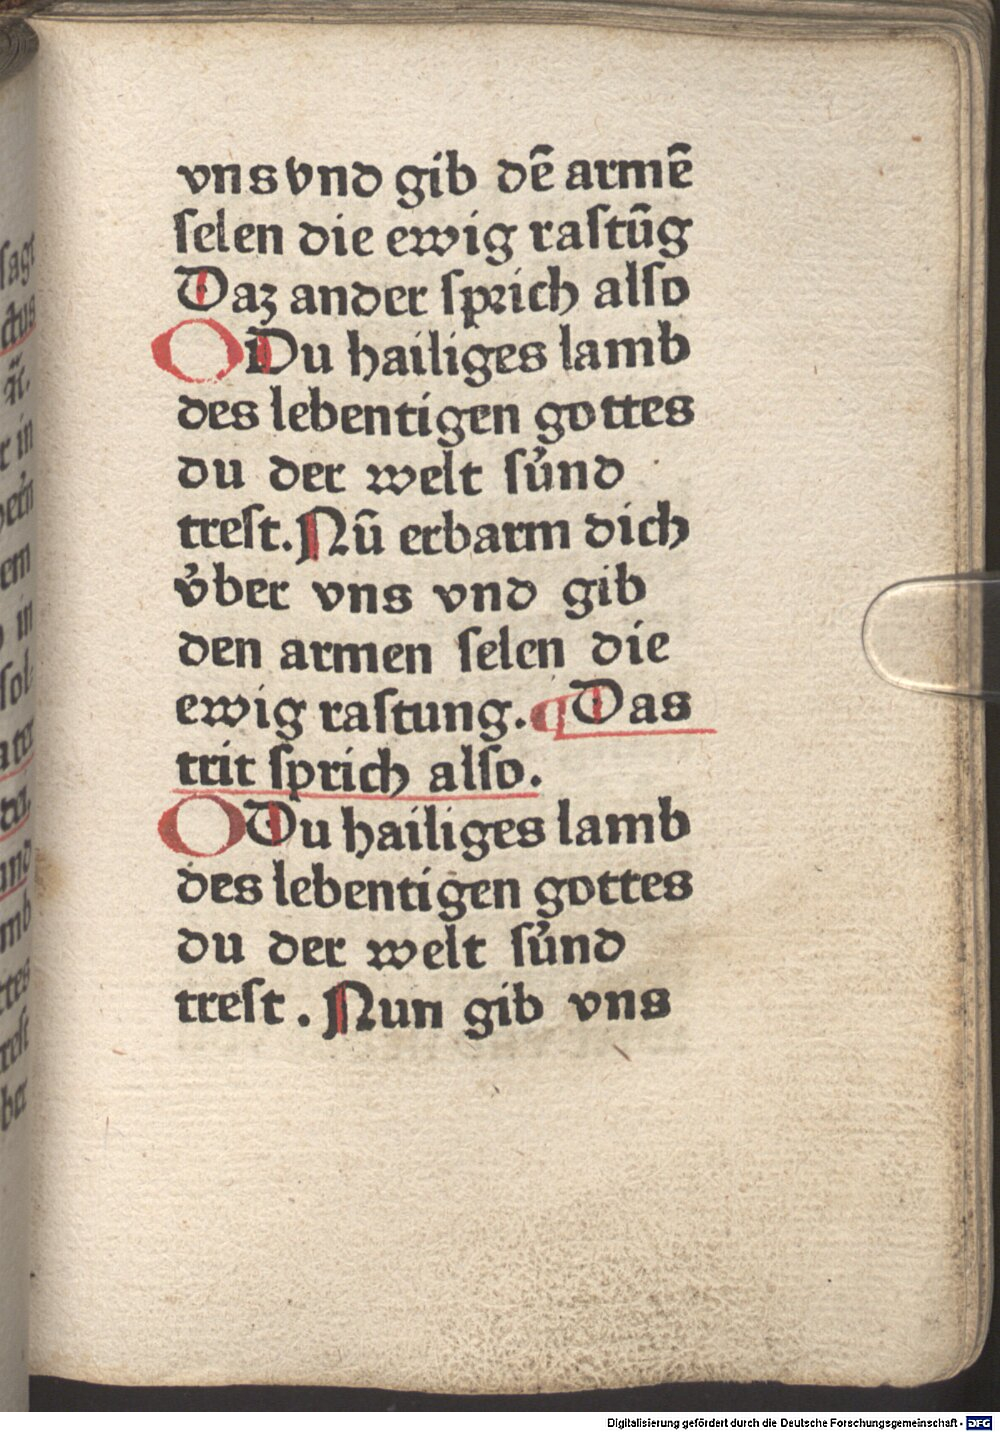 vns vnd gib dē armē
ſelen die ewig raſtūg
Daz ander ſprich alſo
O Du hailiges lamb
des lebentigen gottes
du der welt ſu̇nd
treſt. Nū erbarm dich
v̇ber vns vnd gib
den armen ſelen die
ewig raſtung. ¶ Das
trit ſprich alſo.
O Du hailiges lamb
des lebentigen gottes
du der welt ſu̇nd
treſt. Nun gib vns
Digitalisierung gefördert durch die Deutsche Forschungsgemeinschaft - DFG